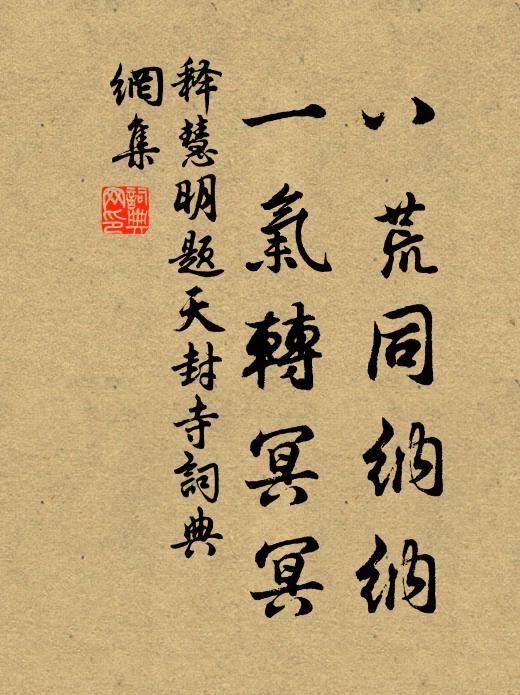 八荒同纳纳
一氣轉冥冥
释慧明题天封寺詞典
網集
詞典
网印